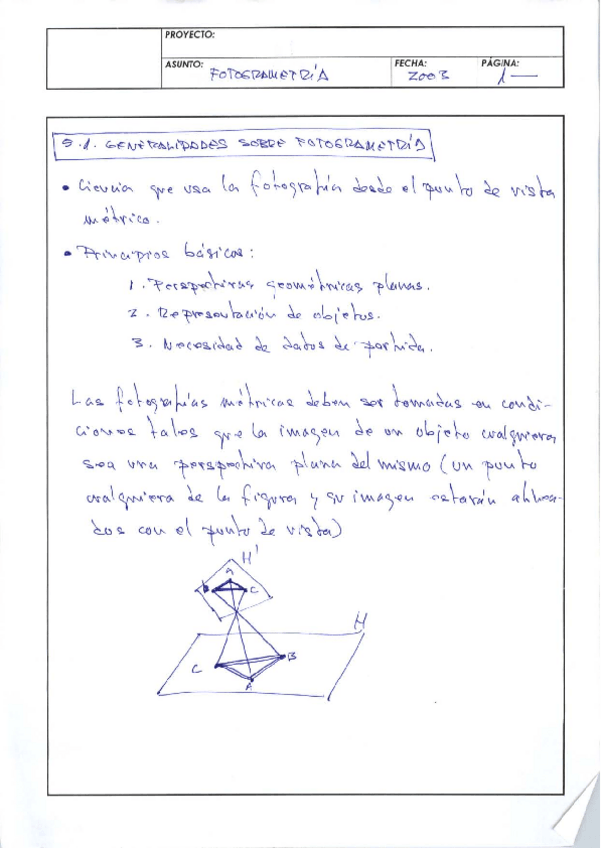 PROYECTO:
ASUNTO: FOTOGRAMETRÍA
FECHA: 2003
PÁGINA: 1
9.1. GENERALIDADES SOBRE FOTOGRAMETRÍA
• Ciencia que usa la fotografía desde el punto de vista
métrico.
• Principios básicos:
1. Perspectivas geométricas planas.
2. Representación de objetos.
3. Necesidad de datos de partida.
Las fotografías métricas deben ser tomadas en condi-
ciones tales que la imagen de un objeto cualquiera
sea una perspectiva plana del mismo (un punto
cualquiera de la figura y su imagen estarán alinea-
dos con el punto de vista)
H'
A
B
C
H
C
B
A